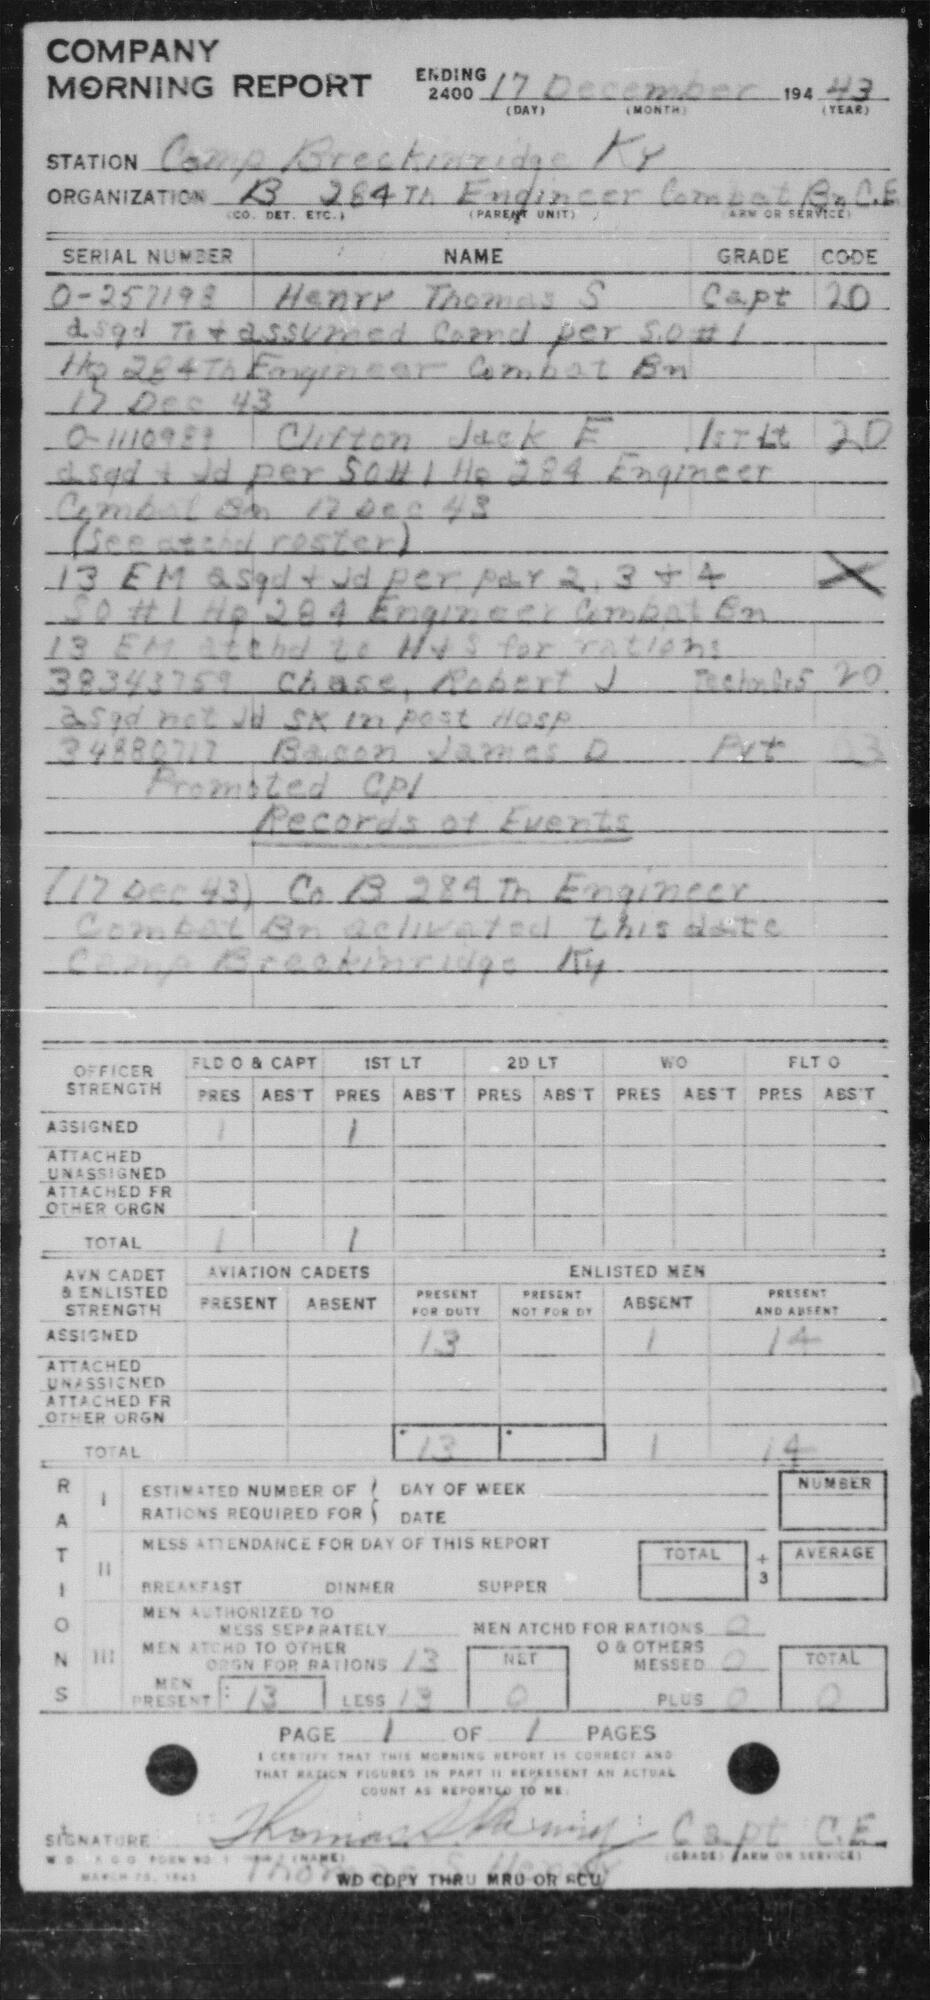 COMPANY
MORNING REPORT ENDING 2400 17 December 194 43
(DAY) (MONTH) (YEAR)
STATION Camp Breckinridge Ky
ORGANIZATION B 284Th Engineer Combat Bn C.E
(CO. DET. ETC.) (PARENT UNIT) (ARM OR SERVICE)
SERIAL NUMBER NAME GRADE CODE
O-257198 Henry Thomas S Capt 20
asgd To + assumed Comd per S.O # 1
Hq 284Th Engineer Combat Bn
17 Dec 43
O-1110989 Clifton Jack E 1st Lt 20
asgd + Jd per SO# 1 Hq 284 Engineer
Combat Bn 17 Dec 43
(See atchd roster)
13 EM asgd + Jd per par 2, 3 + 4 X
SO # 1 Hq 284 Engineer Combat Bn
13 EM atchd to H+S for rations
38343759 Chase, Robert J Tech Gr5 20
asgd not Jd SK in post Hosp
34880717 Bacon James D Pvt
Promoted Cpl
Records of Events
(17 Dec 43) Co B 284 Th Engineer
Combat Bn activated this date
Camp Breckinridge Ky
OFFICER STRENGTH FLD O & CAPT 1ST LT 2D LT WO FLT O
PRES ABS'T PRES ABS'T PRES ABS'T PRES ABS'T PRES ABS'T
ASSIGNED 1 1
ATTACHED UNASSIGNED
ATTACHED FR OTHER ORGN
TOTAL 1 1
AVN CADET & ENLISTED STRENGTH AVIATION CADETS ENLISTED MEN
PRESENT ABSENT PRESENT FOR DUTY PRESENT NOT FOR DY ABSENT PRESENT AND ABSENT
ASSIGNED 13 1 14
ATTACHED UNASSIGNED
ATTACHED FR OTHER ORGN
TOTAL 13 1 14
RATIONS
I ESTIMATED NUMBER OF DAY OF WEEK NUMBER
RATIONS REQUIRED FOR DATE
II MESS ATTENDANCE FOR DAY OF THIS REPORT TOTAL ÷ 3 AVERAGE
BREAKFAST DINNER SUPPER
III MEN AUTHORIZED TO
MESS SEPARATELY MEN ATCHD FOR RATIONS 0
MEN ATCHD TO OTHER
ORGN FOR RATIONS 13 NET O & OTHERS MESSED 0 TOTAL
MEN PRESENT 13 LESS 13 0 PLUS 0 0
PAGE 1 OF 1 PAGES
I CERTIFY THAT THIS MORNING REPORT IS CORRECT AND
THAT RATION FIGURES IN PART II REPRESENT AN ACTUAL
COUNT AS REPORTED TO ME:
SIGNATURE Thomas S. Henry Capt C.E.
W. D. A.G.O. FORM NO. 1 (NAME) (GRADE) (ARM OR SERVICE)
Thomas S Henry
WD COPY THRU MRU OR RCU